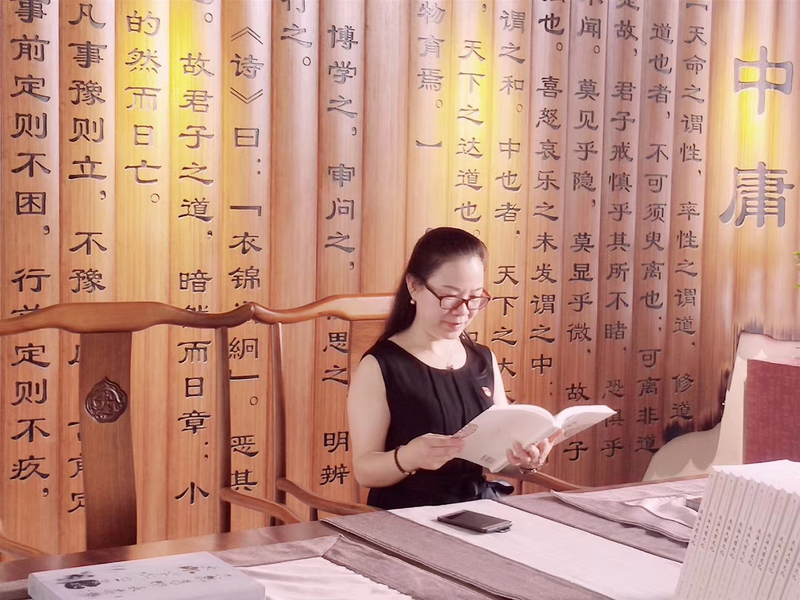 中庸
【天命之谓性，率性之谓道，修道
道也者，不可须臾离也；可离非道
是故，君子戒慎乎其所不睹，恐惧乎
不闻。莫见乎隐，莫显乎微，故 子
也。喜怒哀乐之未发谓之中；
谓之和。中也者，天下之大
天下之达道也。
物育焉。】
博学之，审问之， 思之，明辨
行之。
《诗》曰：「衣锦尚絅」。恶其
。故君子之道，暗然而日章；小
的然而日亡。
凡事豫则立，不豫 前定
事前定则不困，行前定则不疚，